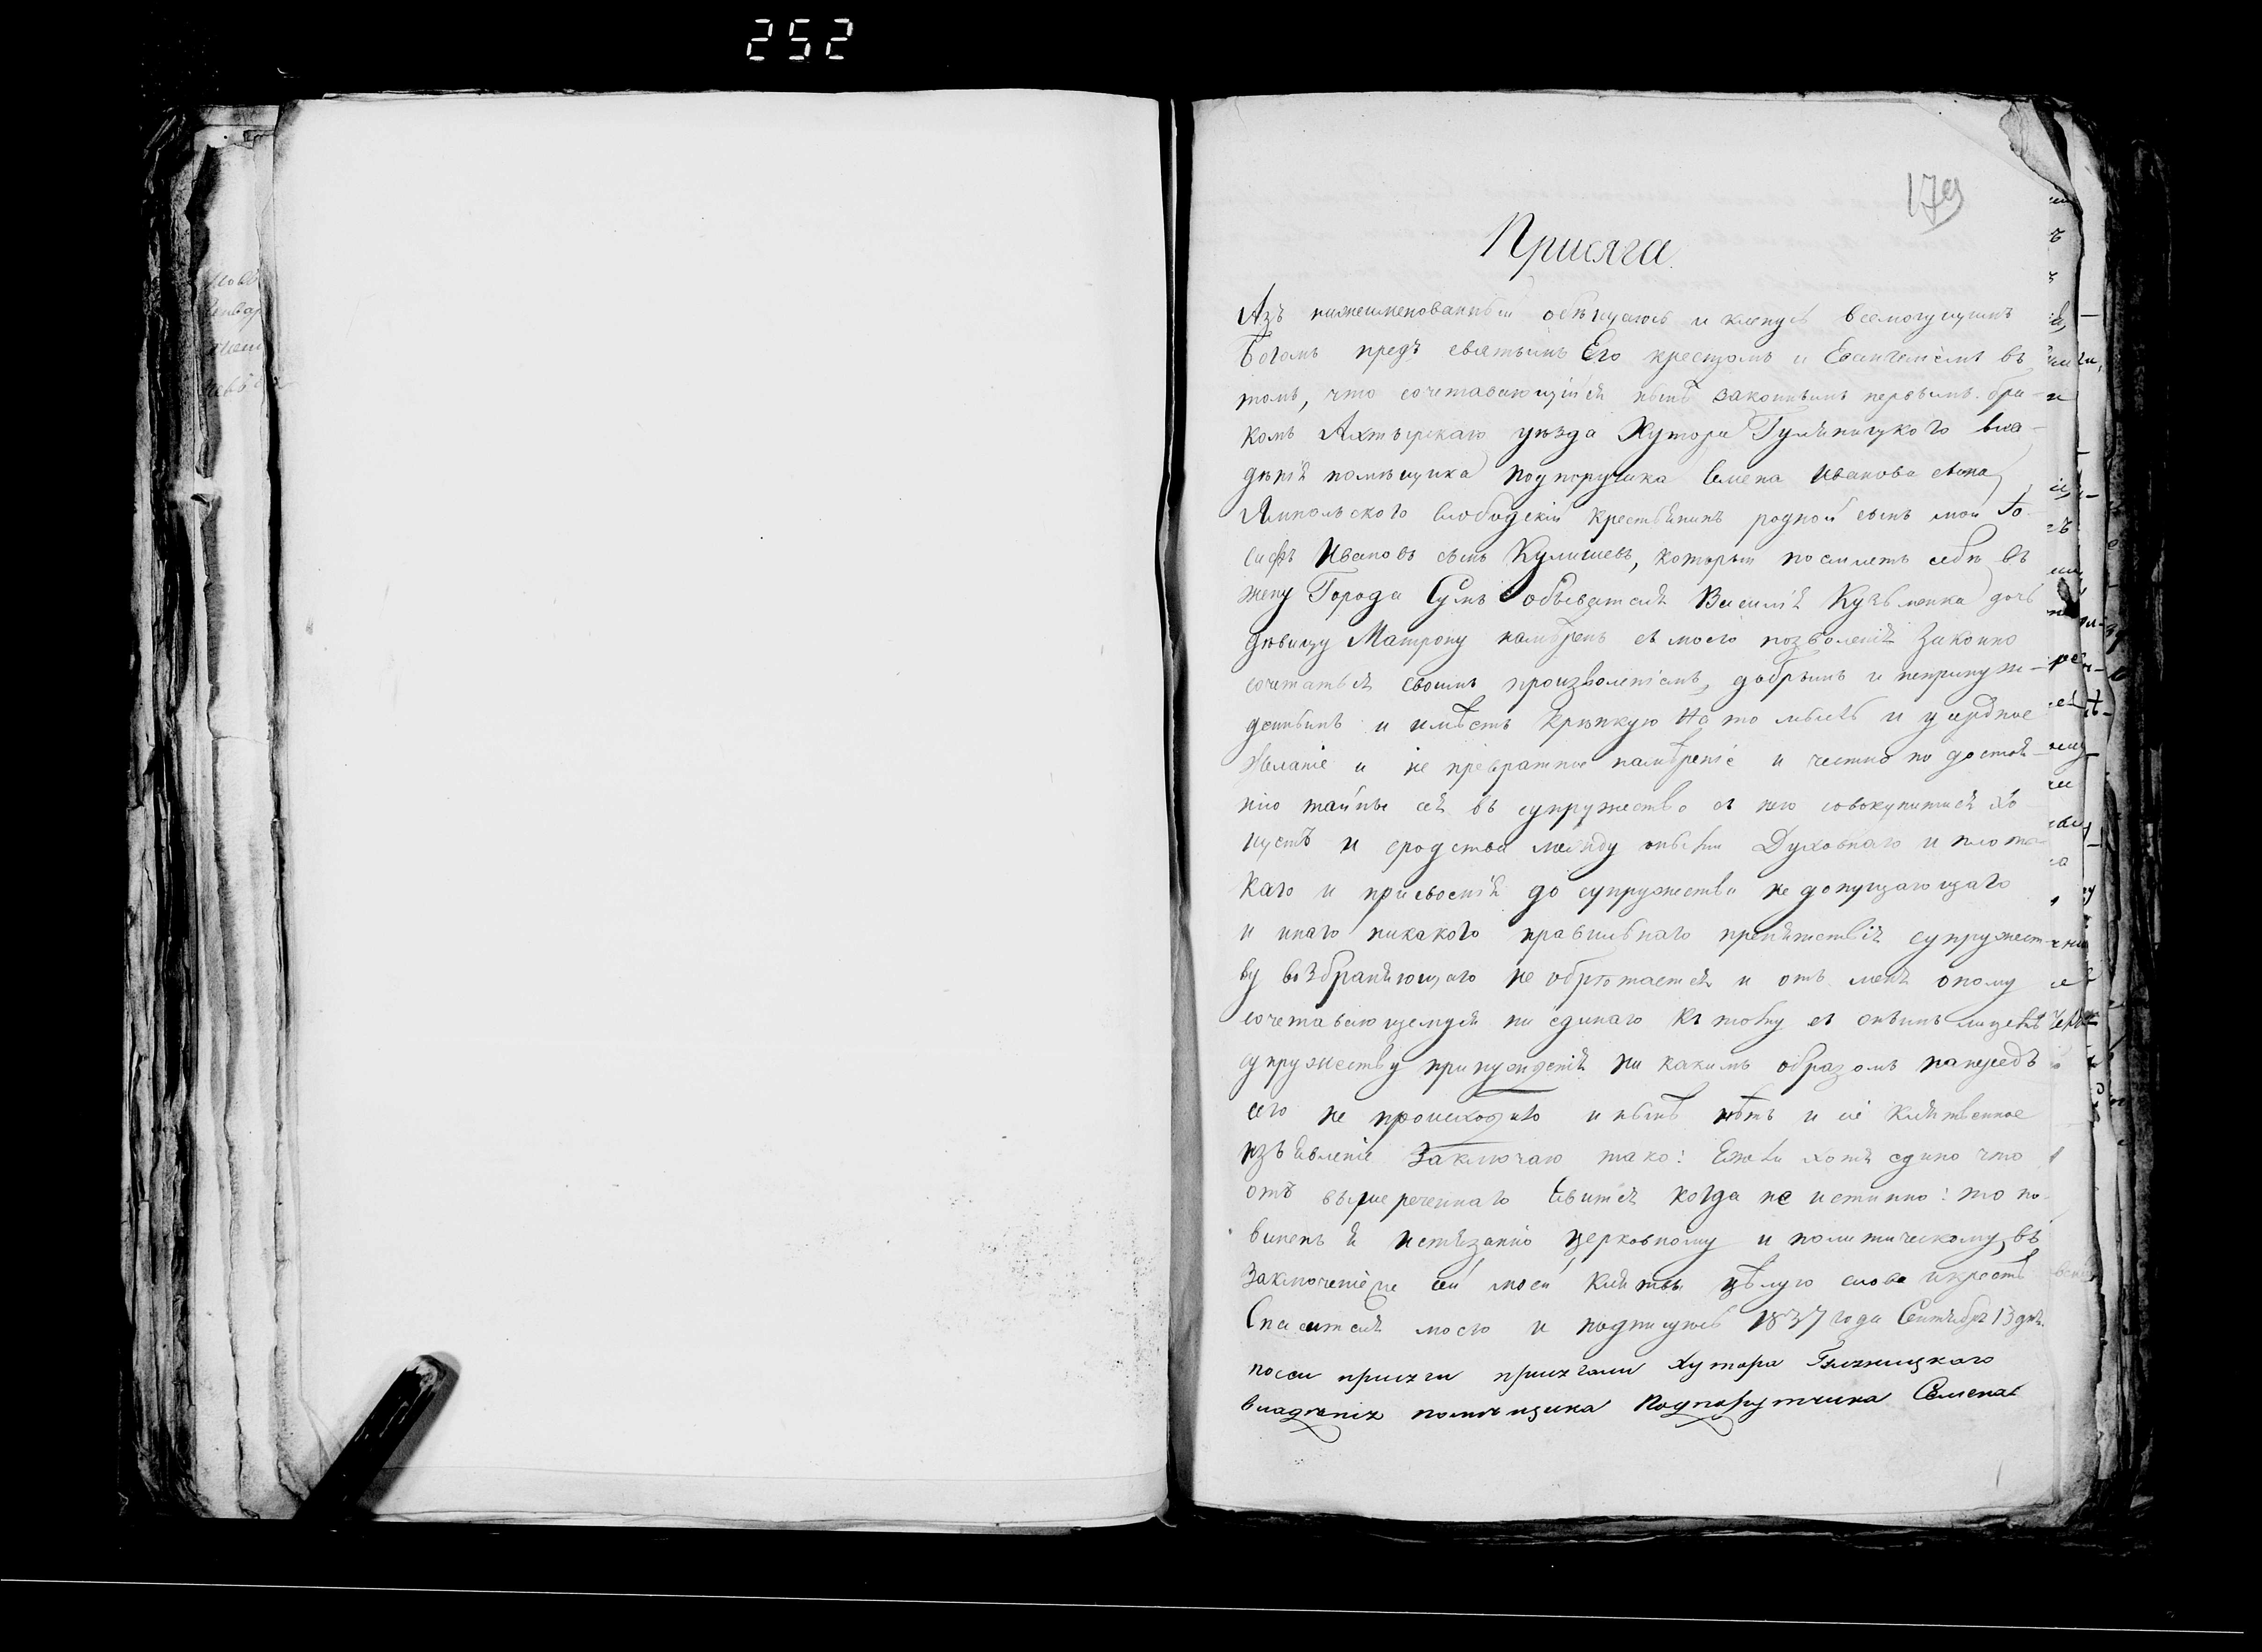 252
179
Присяга
Азъ нижеименованный обѣщаюсь и кленусь всемогущимъ
Богомъ предъ святымъ Его крестомъ и Евангеліемъ въ
томъ, что сочетавающійся нынѣ законнымъ первымъ бра-
комъ Ахтырскаго уѣзда Хутора вла-
дѣнія помѣщика Подпоручика Семена Иванова сына
Ямпольского Слободскій крестьянинъ родной сынъ мой Іо-
сифъ Ивановъ сынъ Кулишевъ, который поемлетъ себѣ въ
жену Города Сумъ обывателя Василія Кузьменка дочь
дѣвицу Матрону намѣренъ съ моего позволенія Законно
сочетаться своимъ произволеніемъ, добрымъ и непринуж-
деннымъ и имѣетъ крѣпкую на то мысль и усердное
желаніе и не превратное намѣреніе и честно по достоя-
нію тайны сея въ супружество съ нею совокупитися хо
щетъ и сродства между ними Духовнаго и плотс
каго и присвоенія до супружества не допущающаго
и инаго никакого правильнаго препятствія супружест-
ву возбраняющаго не обрѣтается и отъ меня оному
сочетавающемуся ни единаго къ тому съ онымъ лицемъ
супружеству принужденія ни какимъ образомъ напередъ
сего не происходило и нынѣ нѣтъ и сіе клятвенное
изъявленіе Заключаю тако: Ежели хотя едино что
отъ вышереченнаго явится когда не истинно: то по-
виненъ я истязанію церковному и политическому, въ
заключеніе же сей моей клятвы цѣлую слова и крестъ
Спасителя моего и подпишусь 1837 года Сентября 13 дня.
по сей присяги присягали Хутора
владѣнія помѣщика Подпорутчика Семена